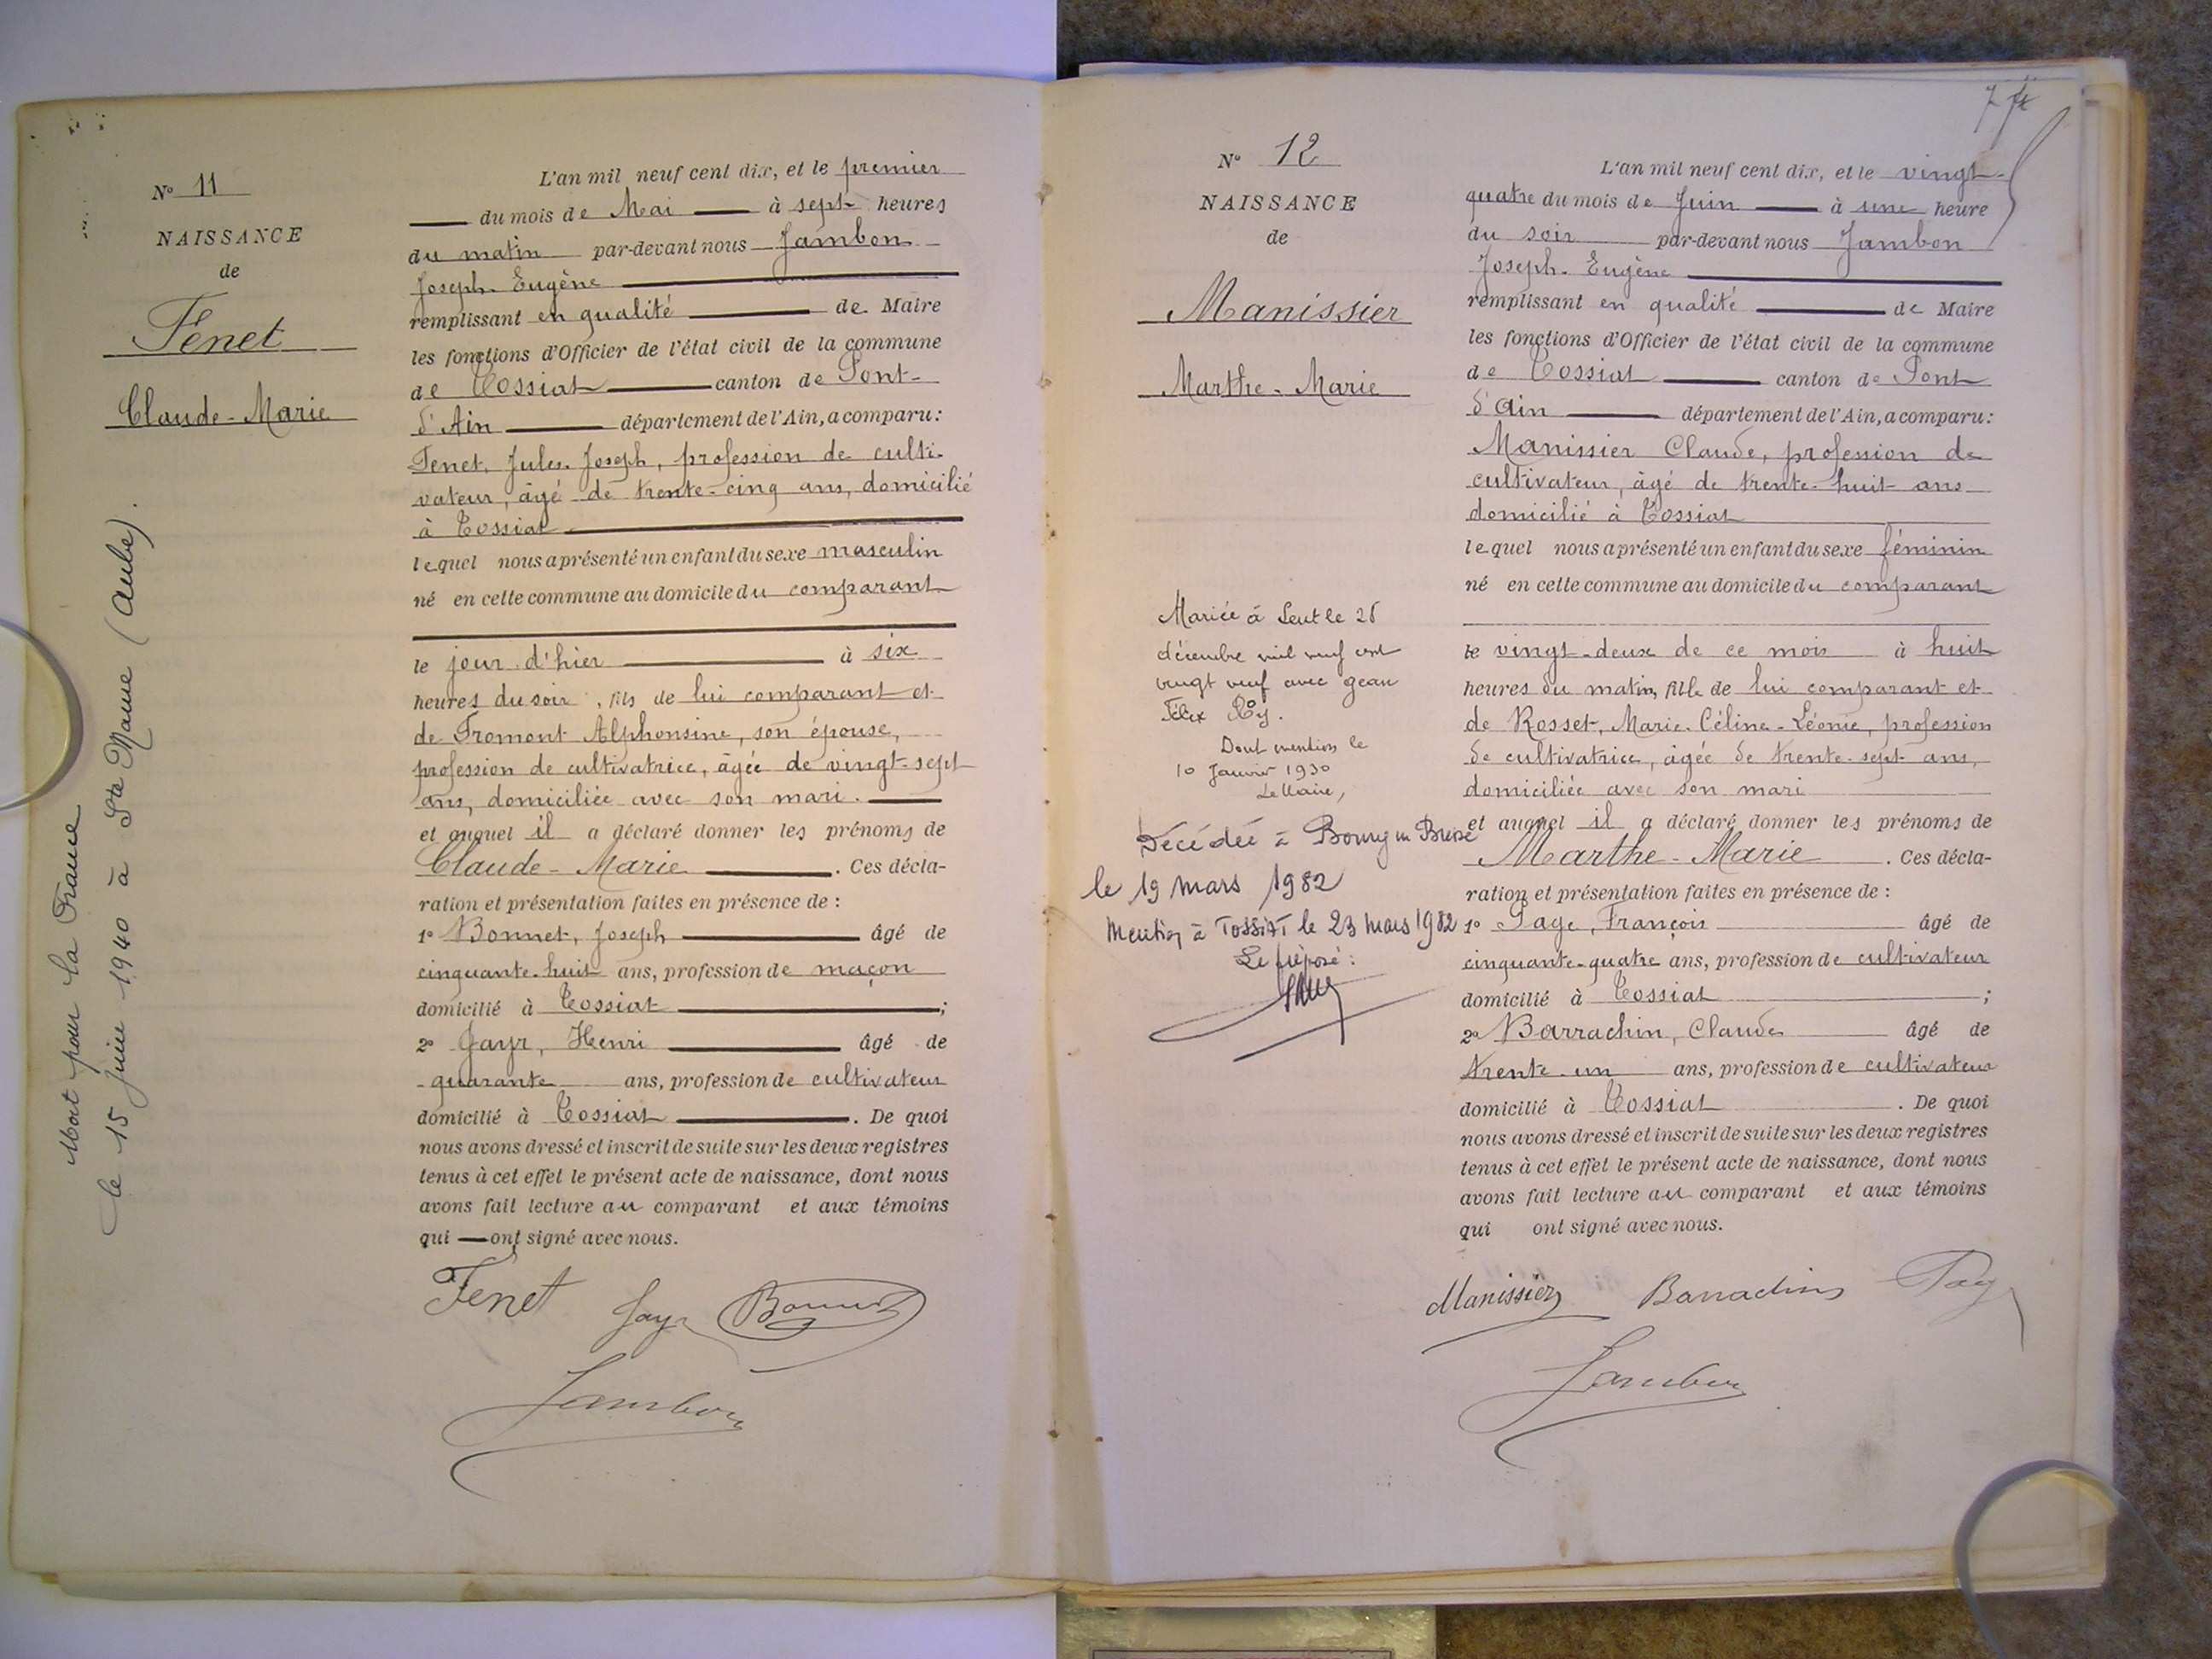 N° 11
NAISSANCE
de
Fenet
Claude-Marie
Mort pour la France
le 15 juin 1940 à Ste Maure (Aube).
L'an mil neuf cent dix, et le premier
du mois de Mai à sept heures
du matin par-devant nous Jambon
Joseph Eugène
remplissant en qualité de Maire
les fonctions d'Officier de l'état civil de la commune
de Tossiat canton de Pont-
d'Ain département de l'Ain, a comparu :
Fenet, Jules Joseph, profession de culti-
vateur, âgé de trente-cinq ans, domicilié
à Tossiat
lequel nous a présenté un enfant du sexe masculin
né en cette commune au domicile du comparant
le jour d'hier à six
heures du soir, fils de lui comparant et
de Fromont Alphonsine, son épouse,
profession de cultivatrice, âgée de vingt-sept
ans, domiciliée avec son mari.
et auquel il a déclaré donner les prénoms de
Claude-Marie. Ces décla-
ration et présentation faites en présence de :
1° Bonnet, Joseph âgé de
cinquante-huit ans, profession de maçon
domicilié à Tossiat ;
2° Jayr, Henri âgé de
quarante ans, profession de cultivateur
domicilié à Tossiat. De quoi
nous avons dressé et inscrit de suite sur les deux registres
tenus à cet effet le présent acte de naissance, dont nous
avons fait lecture au comparant et aux témoins
qui ont signé avec nous.
Fenet Jayr Bonnet
Jambon
N° 12
NAISSANCE
de
Manissier
Marthe-Marie
Mariée à le 28
décembre mil neuf cent
vingt neuf avec Jean
Félix Rey.
Dont mention le
10 Janvier 1930
Le Maire,
Décédée à Bourg en Bresse
le 19 mars 1982
Mention à TOSSIAT le 23 mars 1982
Le préposé :
7
L'an mil neuf cent dix, et le vingt-
quatre du mois de Juin à une heure
du soir par-devant nous Jambon
Joseph-Eugène
remplissant en qualité de Maire
les fonctions d'Officier de l'état civil de la commune
de Tossiat canton de Pont
d'Ain département de l'Ain, a comparu :
Manissier Claude, profession de
cultivateur, âgé de trente-huit ans
domicilié à Tossiat
lequel nous a présenté un enfant du sexe féminin
né en cette commune au domicile du comparant
le vingt-deux de ce mois à huit
heures du matin, fille de lui comparant et
de Rosset, Marie-Céline-Léonie, profession
de cultivatrice, âgée de trente-sept ans,
domiciliée avec son mari
et auquel il a déclaré donner les prénoms de
Marthe-Marie. Ces décla-
ration et présentation faites en présence de :
1° Page, François âgé de
cinquante-quatre ans, profession de cultivateur
domicilié à Tossiat ;
2° Barrachin, Claude âgé de
trente-un ans, profession de cultivateur
domicilié à Tossiat. De quoi
nous avons dressé et inscrit de suite sur les deux registres
tenus à cet effet le présent acte de naissance, dont nous
avons fait lecture au comparant et aux témoins
qui ont signé avec nous.
Manissier Barrachin Page
Jambon